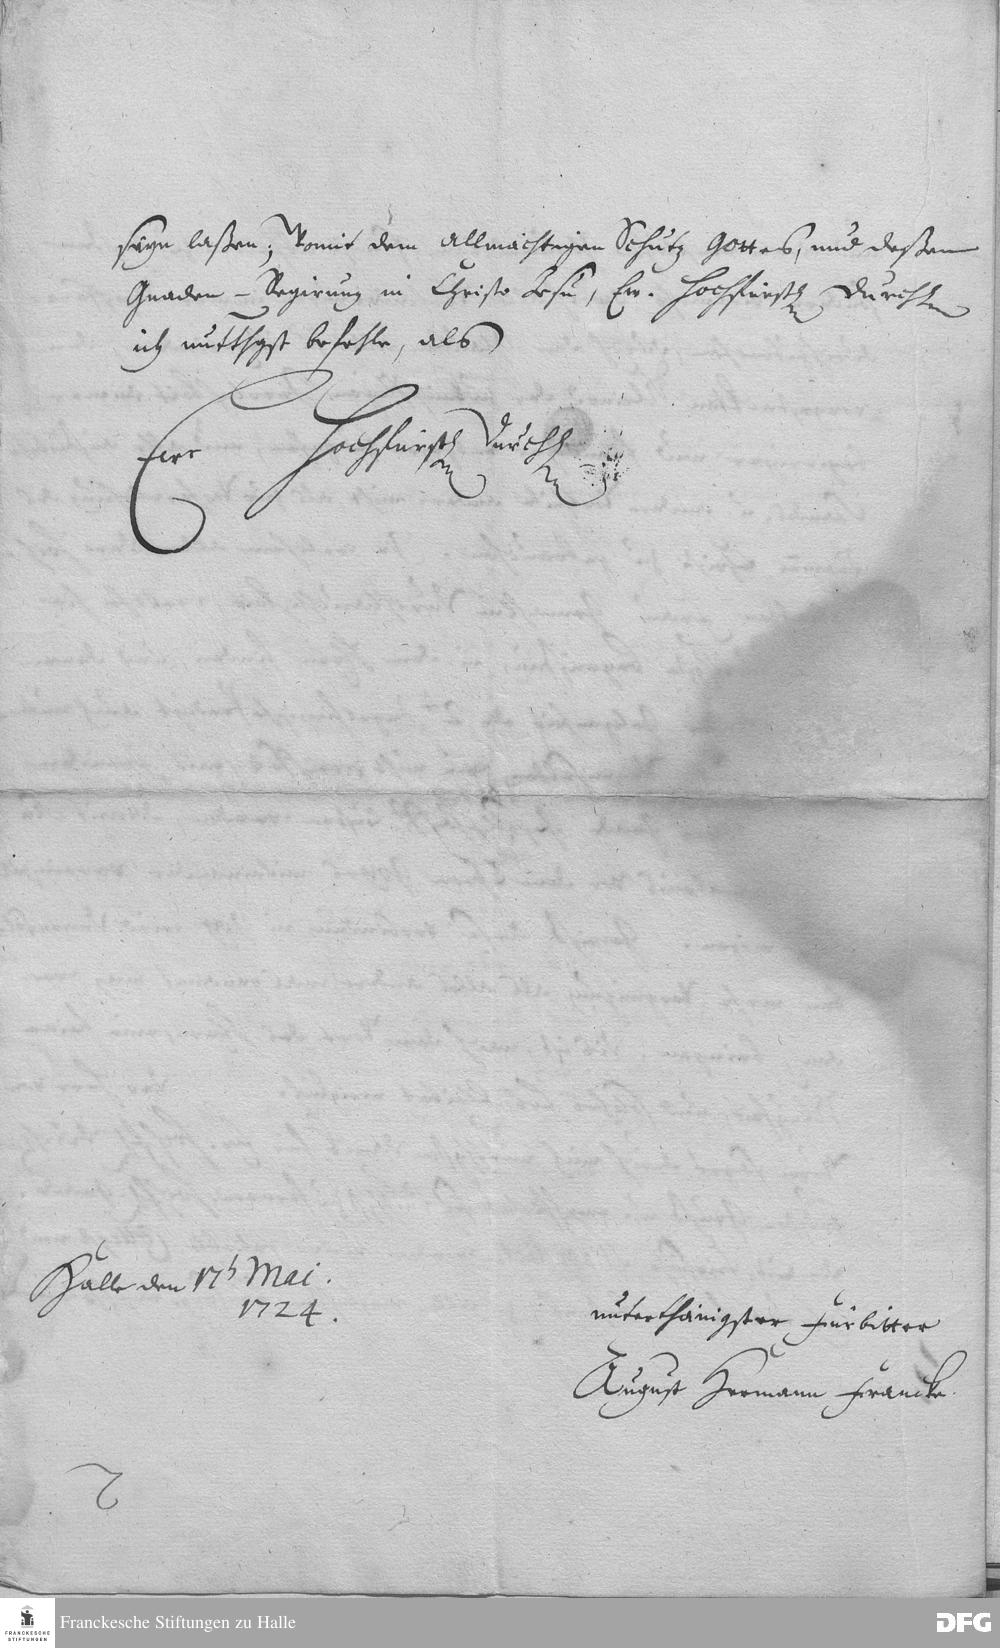 seyn laßen; Womit dem allmächtigen Schutz Gottes, und deßen
Gnaden-Regirung in Christo Jesu, Ew. Hochfürstl Durchl
ich unterthgst befehle, als
Eure Hochfürstl Durchl
Halle den 17 Mai.
1724.
unterthänigster Fürbitter
August Hermann Francke.
FRANCKESCHE
STIFTUNGEN
Franckesche Stiftungen zu Halle
DFG